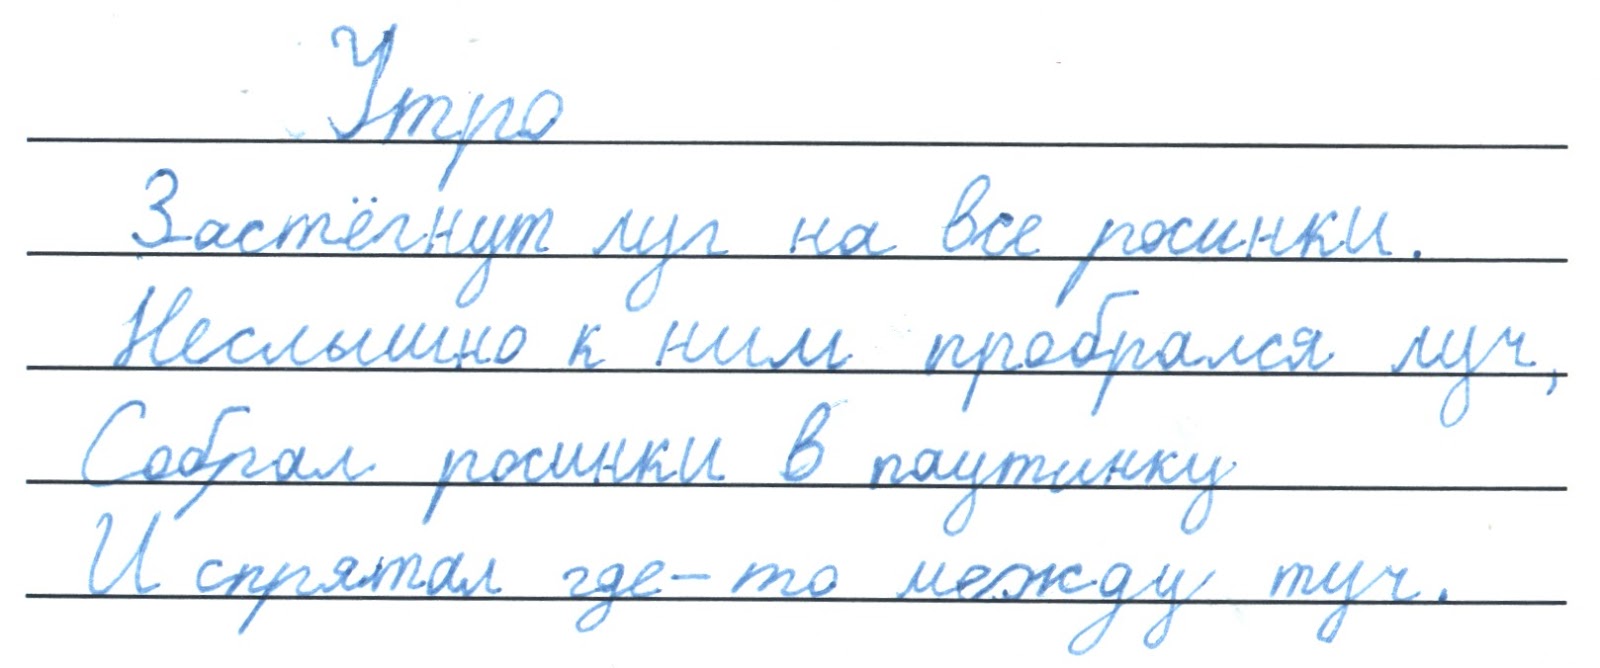 Утро
Застёгнут луг на все росинки.
Неслышно к ним пробрался луч,
Собрал росинки в паутинку
И спрятал где-то между туч.